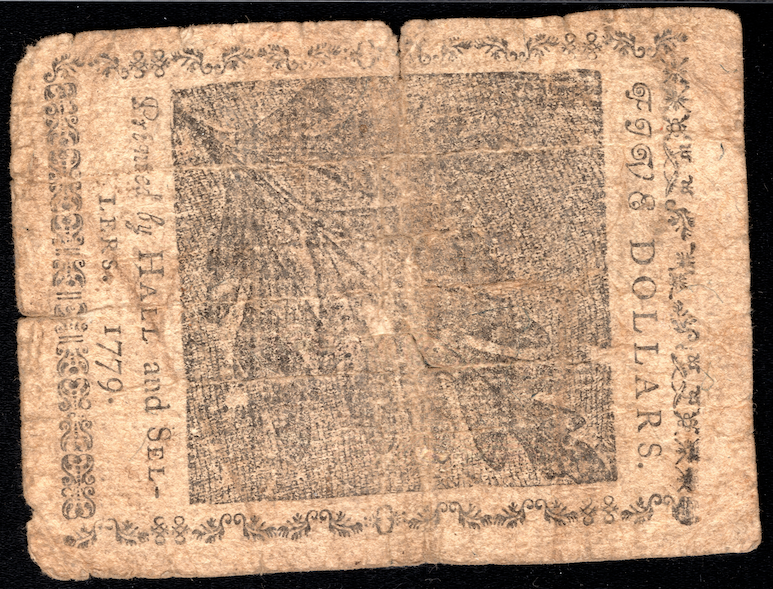 FIVE DOLLARS.
Printed by HALL and SEL-
LERS. 1779.